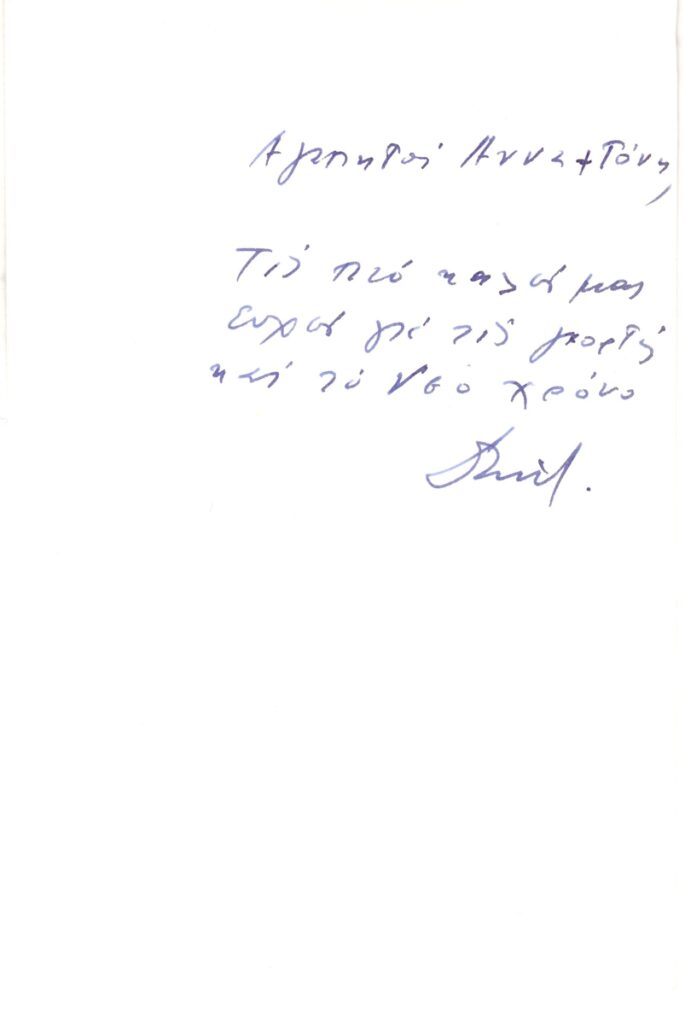 Αγαπητοί Άννα + Τόνη,
Τις πιό καλές μας
ευχές γιά τις γιορτές
καί τό νέο χρόνο